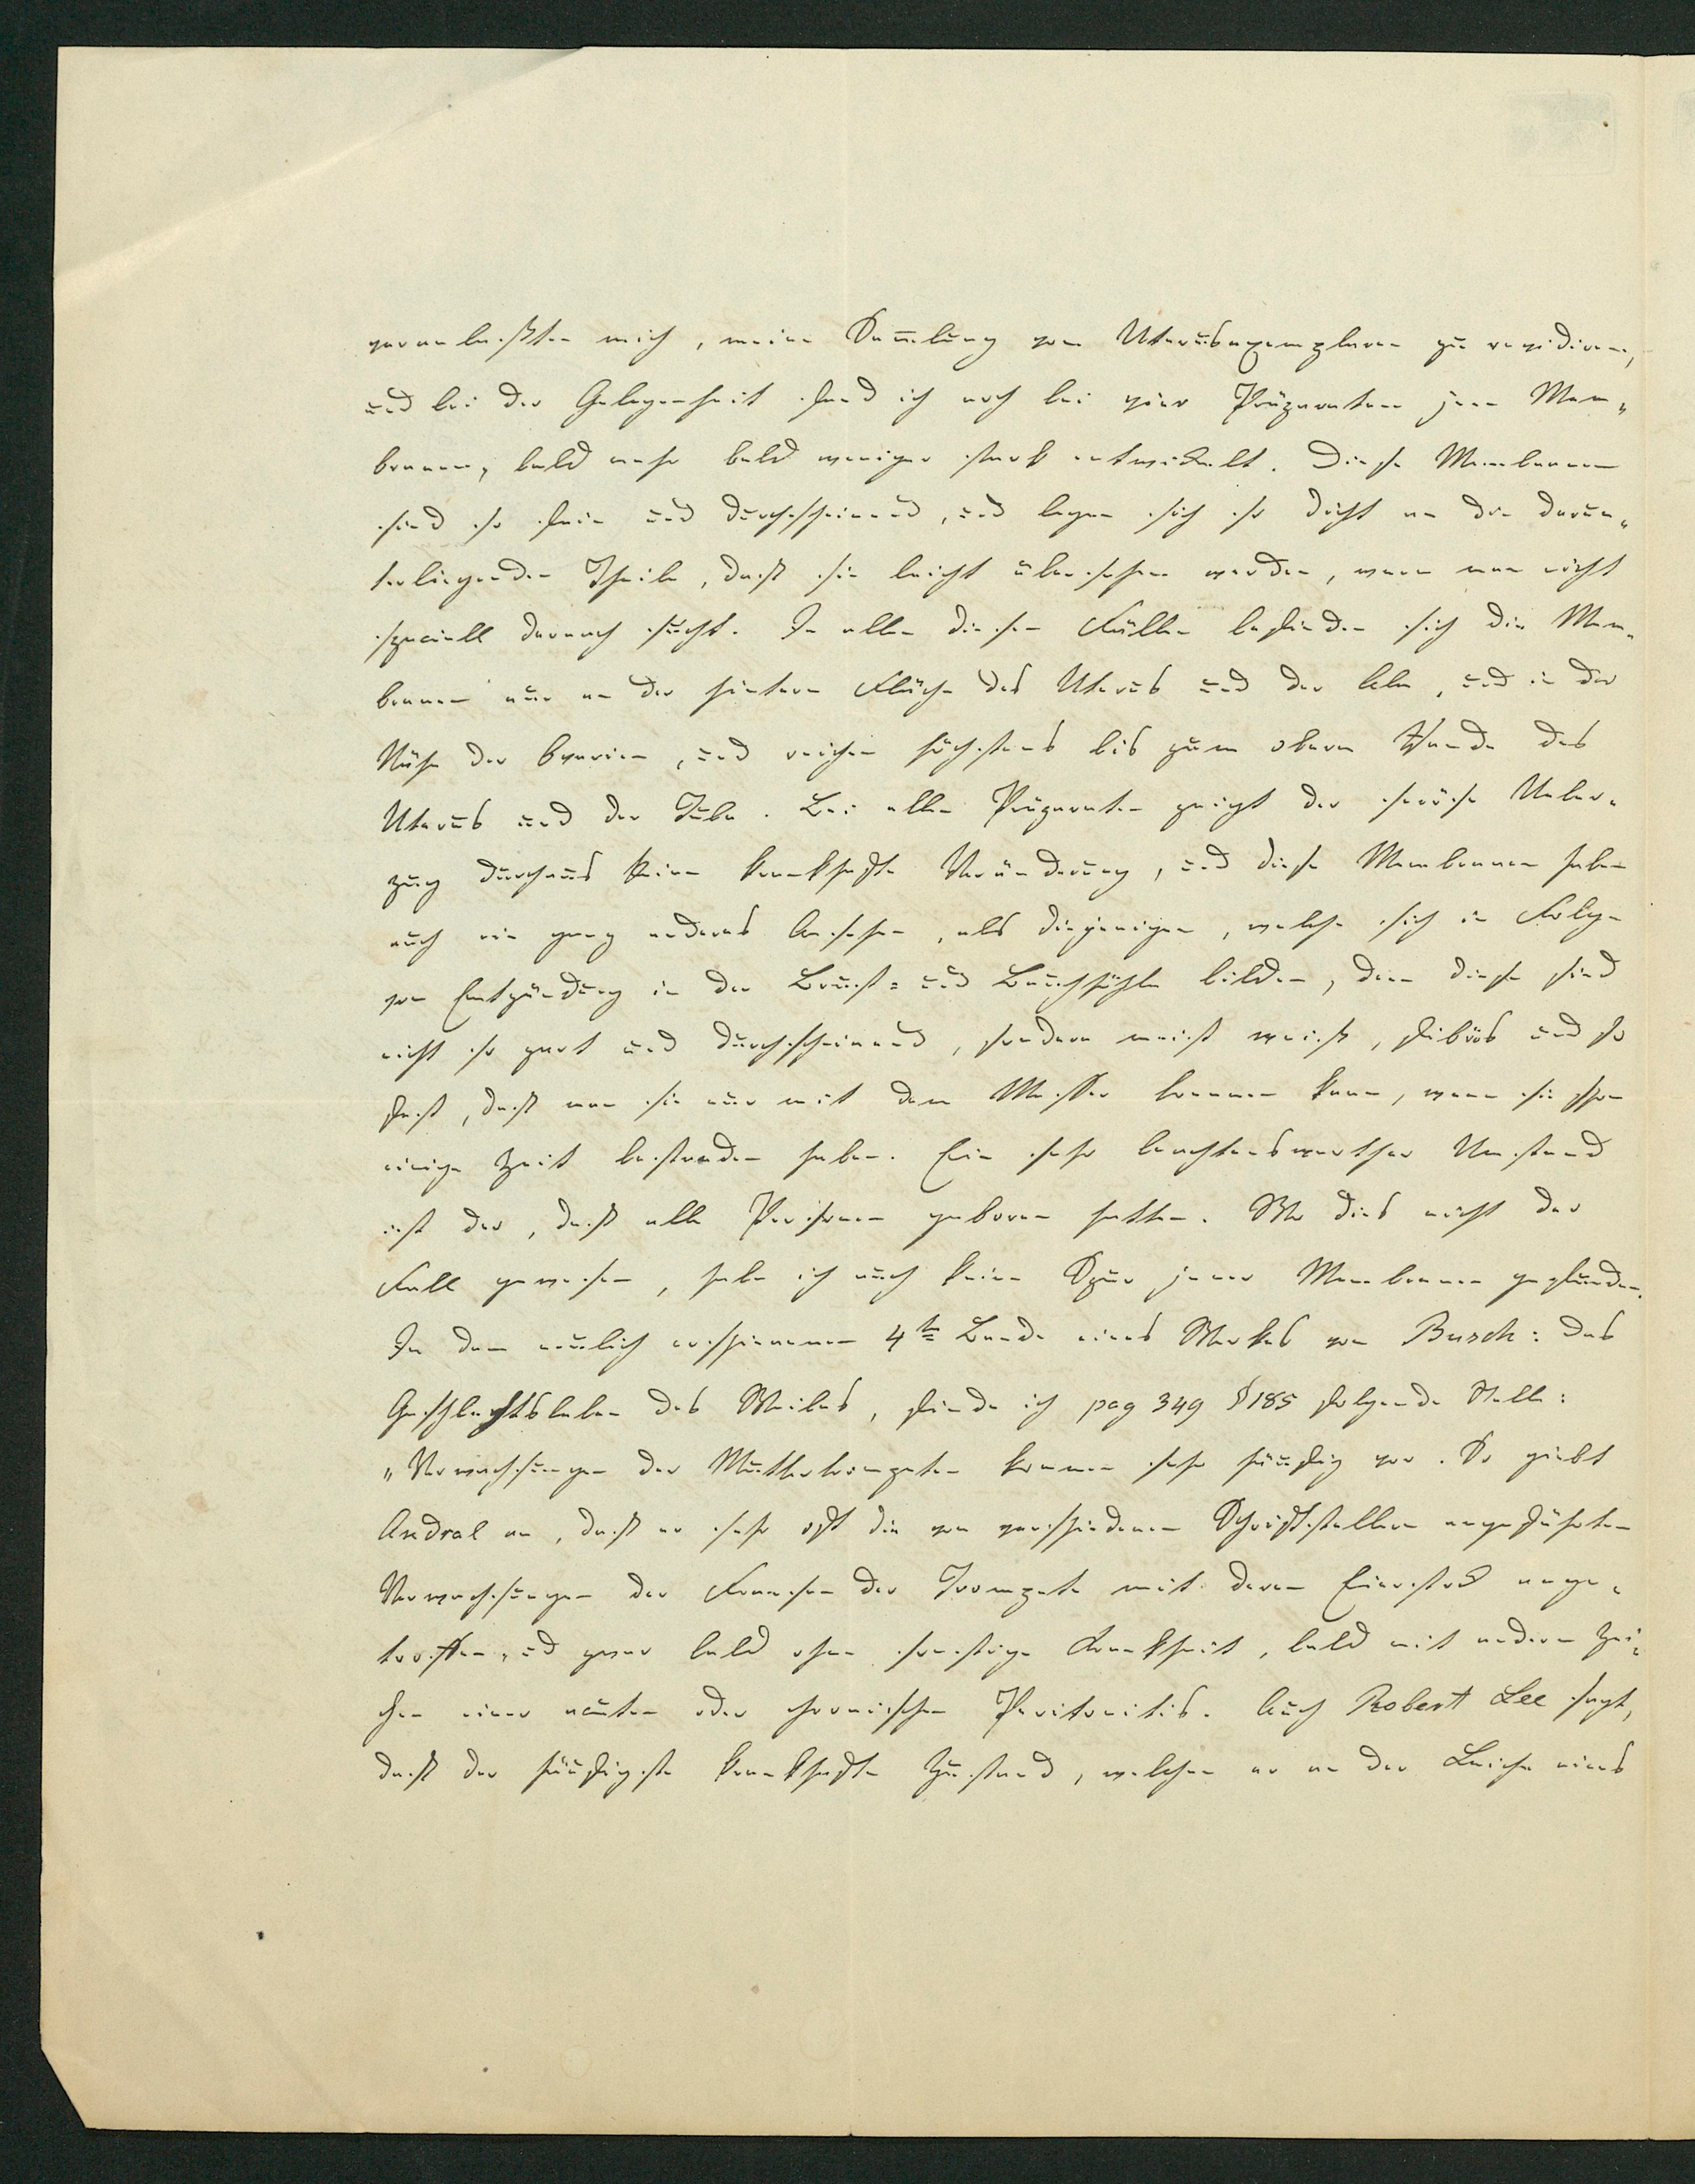 veranlaßten mich, meine Sam̄lung von Uterusexemplaren zu revidiren,
und bei der Gelegenheit fand ich noch bei vier Präparaten jene Mem„
branen, bald mehr bald weniger stark entwickelt. Diese Membranen
sind so fein und durchscheinend, und legen sich so dicht an die darun„
terliegenden Theile, daß sie leicht übersehen werden, wenn man nicht
speciell darnach sucht. In allen diesen Fällen befinden sich die Mem„
branen nur an der hintern Fläche des Uterus und der Alae, und in der
Nähe der Ovarien, und reichen höchstens bis zum obern Rande des
Uterus und der Tuben. Bei allen Präparaten zeigt der seröse Ueber„
zug durchaus keine krankhafte Veränderung, und diese Membranen haben
auch ein ganz anderes Ansehen, als diejenigen, welche sich in Folge
von Entzündung in der Brust= und Bauchhöhle bilden, denn diese sind
nicht so zart und durchscheinend, sondern meist weiß, fibrös und so
fest, daß man sie nur mit dem Messer trennen kann, wenn sie schon
einige Zeit bestanden haben. Ein sehr beachtenswerther Umstand
ist der, daß alle Personen geboren hatten. Wo dies nicht der
Fall gewesen, habe ich auch keine Spur jener Membranen gefunden.
In dem neulich erschienenen 4ten Bande eines Werkes von Busch: das
Geschlechtsleben des Weibes, finde ich pag 349 § 185 folgende Stelle:
„Verwachsungen der Muttertrompeten kommen sehr häufig vor. So giebt
Andral an, daß er sehr oft die von verschiedenen Schriftstellern angeführten
Verwachsungen der Franzen der Trompete mit deren Eierstock ange„
troffen, und zwar bald ohne sonstige Krankheit, bald mit andern Zei„
chen einer acuten oder chronischen Peritonitis. Auch Robert Lee sagt,
daß der häufigste krankhafte Zustand, welchen er an der Leiche eines